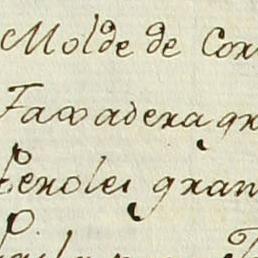 Molde de Cor
Taxadera gr
Peroles gran
P.